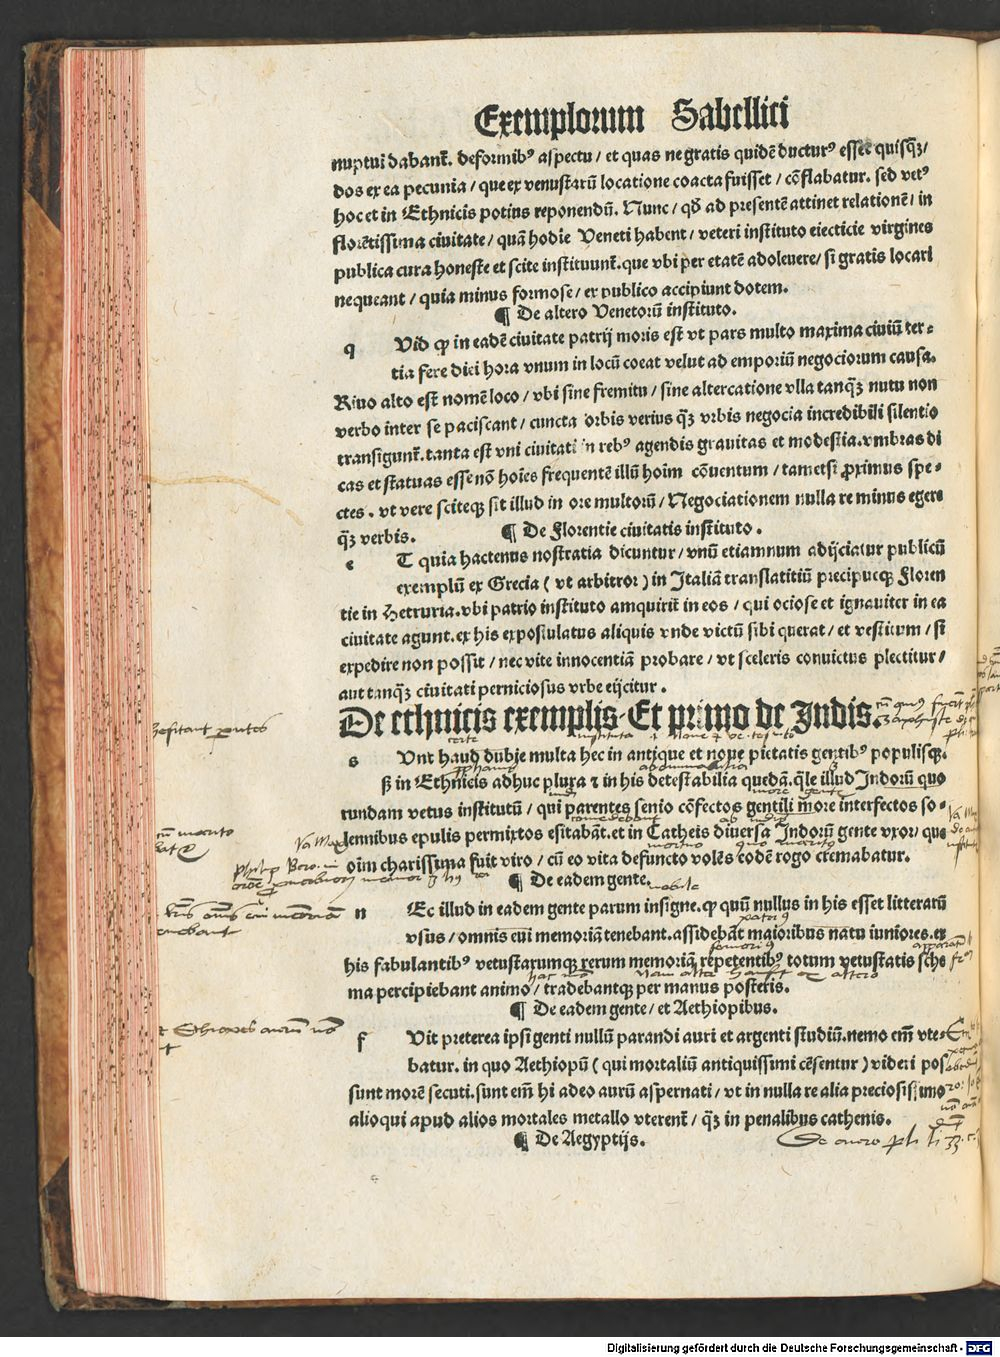 Exemplorum Sabellici
nuptui dabant̃. deformibꝰ aspectu / et quas ne gratis quidẽ ducturꝰ esset quisqꝫ /
dos ex ea pecunia / que ex venustarũ locatione coacta fuisset / cõflabatur. sed vetꝰ
hoc et in Ethnicis potius reponendũ. Nunc / qđ ad presentẽ attinet relationẽ / in
florẽtissima ciuitate / quã hodie Veneti habent / veteri instituto eiecticie virgines
publica cura honeste et scite instituunt̃. que vbi per etatẽ adoleuere / si gratis locari
nequeant / quia minus formose / ex publico accipiunt dotem.
¶ De altero Venetorũ instituto.
q Vid ꝙ in eadẽ ciuitate patrij moris est vt pars multo maxima ciuiũ ter⸗
tia fere diei hora vnum in locũ coeat velut ad emporiũ negociorum causa.
Riuo alto est nomẽ loco / vbi sine fremitu / sine altercatione vlla tanqꝫ nutu non
verbo inter se paciscant / cuncta orbis verius qꝫ vrbis negocia incredibili silentio
transigunt̃. tanta est vni ciuitati in rebꝰ agendis grauitas et modestia. vmbras di
cas et statuas esse nõ hoĩes frequentẽ illũ hoĩm cõuentum / tametsi ꝓximus spe⸗
ctes. vt vere sciteqꝫ sit illud in ore multorũ / Negociationem nulla re minus egere
qꝫ verbis. ¶ De Florentie ciuitatis instituto.
e T quia hactenus nostratia dicuntur / vnũ etiamnum adijciatur publicũ
exemplũ ex Grecia ( vt arbitror ) in Italiã translatitiũ precipueqꝫ Floren
tie in Hetruria. vbi patrio instituto amquirit̃ in eos / qui ociose et ignauiter in ea
ciuitate agunt. ex his expostulatus aliquis vnde victũ sibi querat / et vestitum / si
expedire non possit / nec vite innocentiã probare / vt sceleris conuictus plectitur /
aut tanqꝫ ciuitati perniciosus vrbe eijcitur.
De ethnicis exemplis. Et primo de Indis.
s Vnt haud dubie multa hec in antique et noue pietatis gentibꝰ populisqꝫ.
ꝭ in Ethnicis adhuc plura ⁊ in his detestabilia quedã. q̃le illud Indorũ quo
rundam vetus institutũ / qui parentes senio cõfectos gentili more interfectos so⸗
lennibus epulis permixtos esitabãt. et in Catheis diuersa Indorũ gente vxor / que
oĩm charissima fuit viro / cũ eo vita defuncto volẽs eodẽ rogo cremabatur.
¶ De eadem gente.
n Ec illud in eadem gente parum insigne. ꝙ quũ nullus in his esset litterarũ
vsus / omnis eui memoriã tenebant. assidebãt maioribus natu iuniores. ex
his fabulantibꝰ vetustarumqꝫ rerum memoriã repetentibꝰ totum vetustatis sche
ma percipiebant animo / tradebantqꝫ per manus posteris.
¶ De eadem gente / et Aethiopibus.
f Vit preterea ipsi genti nullũ parandi auri et argenti studiũ. nemo em̃ vte⸗
batur. in quo Aethiopũ ( qui mortaliũ antiquissimi cẽsentur ) videri pos
sunt morẽ secuti. sunt em̃ hi adeo aurũ aspernati / vt in nulla re alia preciosissimo
alioqui apud alios mortales metallo vterent̃ / qꝫ in penalibus cathenis.
¶ De Aegyptijs.
Digitalisierung gefördert durch die Deutsche Forschungsgemeinschaft - DFG